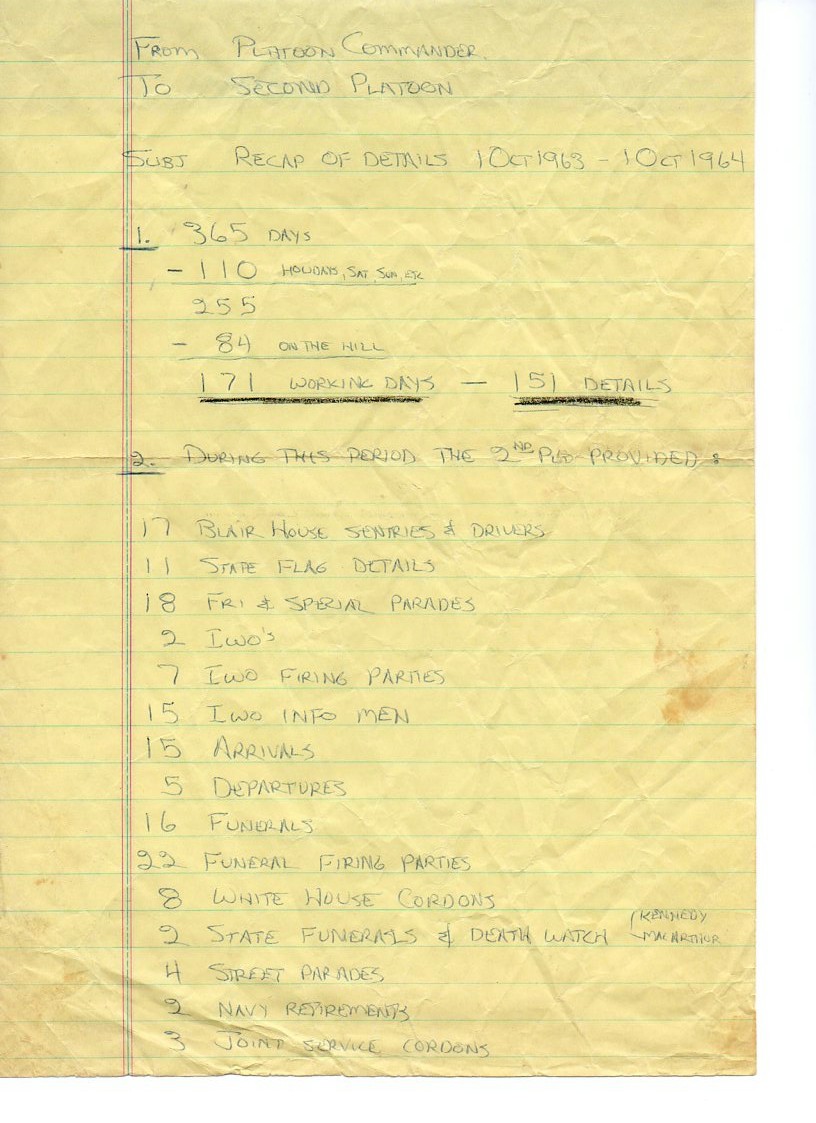 From Platoon Commander
To Second Platoon
Subj Recap of Details 1 Oct 1963 - 1 Oct 1964
1. 365 days
- 110 Holidays, Sat, Sun, etc
255
- 84 on the Hill
171 working days — 151 details
2. During this period the 2nd Plt provided:
17 Blair House sentries & drivers
11 State Flag Details
18 Fri & Special Parades
2 Iwo's
7 Iwo Firing Parties
15 Iwo Info Men
15 Arrivals
5 Departures
16 Funerals
22 Funeral Firing Parties
8 White House Cordons
2 State Funerals & Death Watch (Kennedy
MacArthur
4 Street Parades
2 Navy Retirements
3 Joint Service Cordons